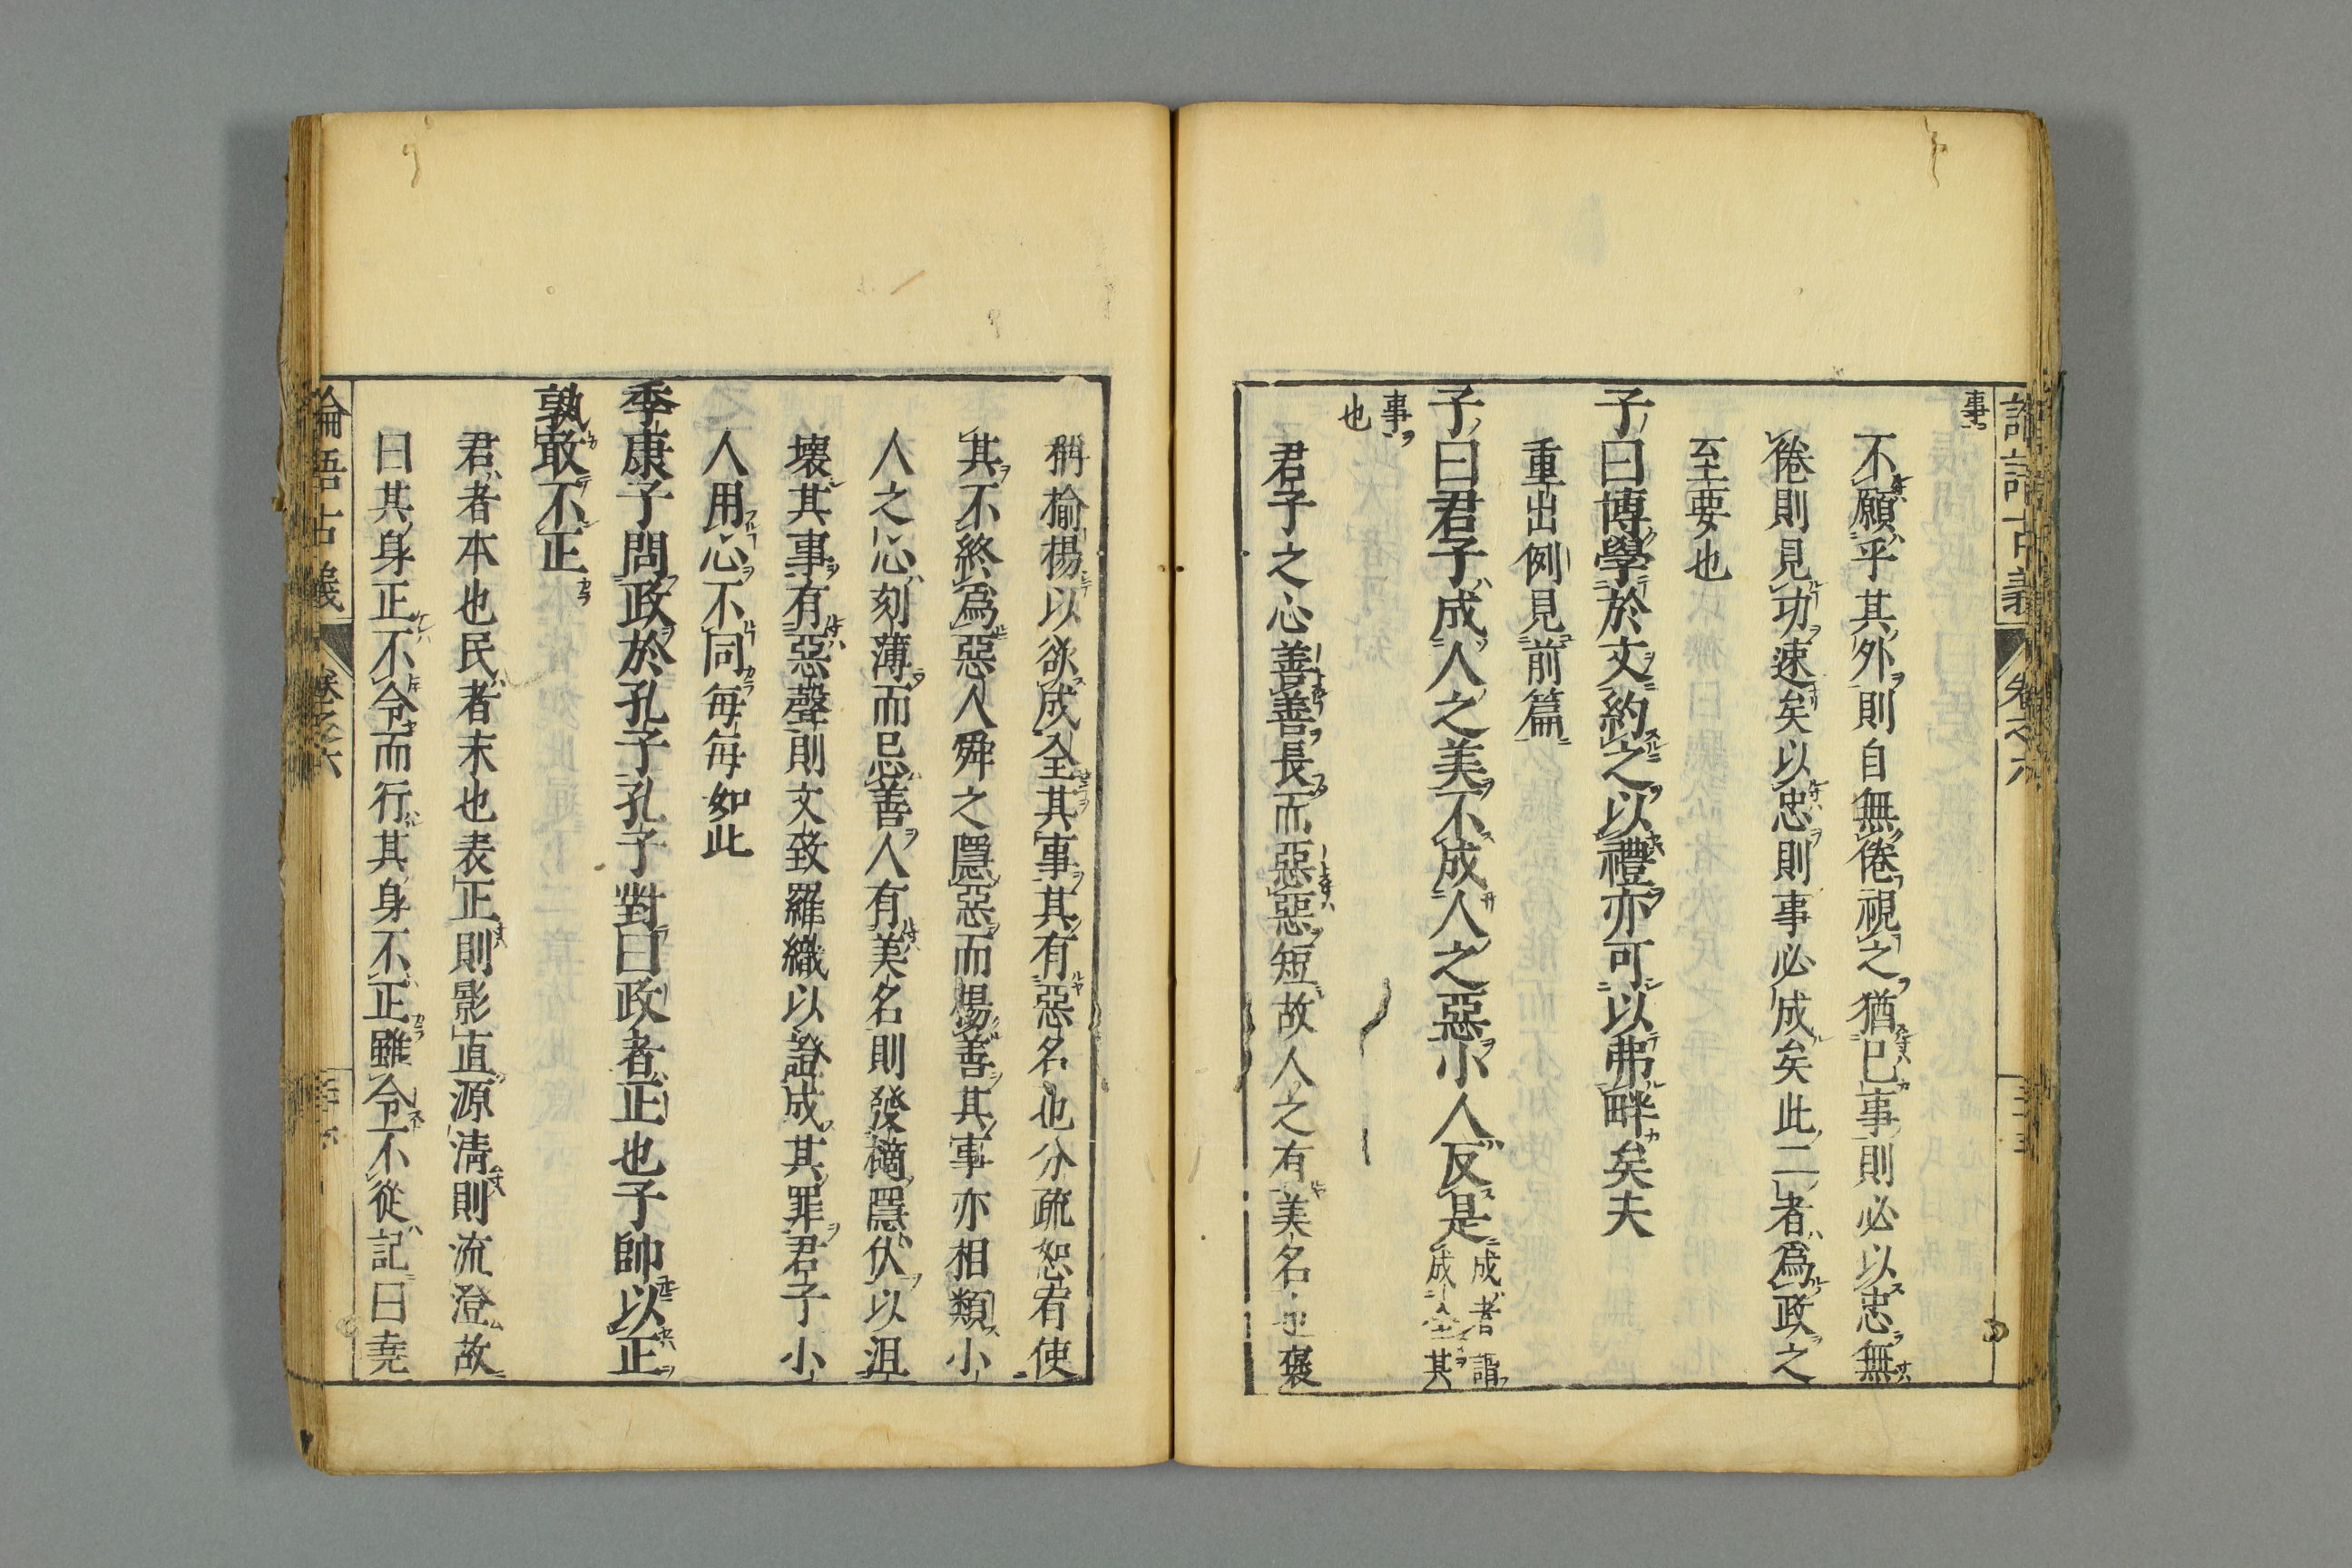 論語古義 卷之六
事
不願乎其外則自無倦視之猶已事則必以忠無
倦則見功速矣以忠則事必成矣此二者爲政之
至要也
子曰博學於文約之以禮亦可以弗畔矣夫
重出例見前篇
子曰君子成人之美不成人之惡小人反是
成者謂
成全其
事
也
君子之心善善長而惡惡短故人之有美名也褒
稱揄楊以欲成全其事其有惡名也分疏恕宥使
其不終爲惡人舜之隱惡而楊善其事亦相類小
人之心刻薄而忌善人有美名則發擿隱伏以沮
壞其事有惡聲則文致羅織以證成其罪君子小
人用心不同每每如此
季康子問政於孔子孔子對曰政者正也子帥以正
孰敢不正
君者本也民者末也表正則影直源清則流澄故
曰其身正不令而行其身不正雖令不從記曰堯
論語古義 卷之六